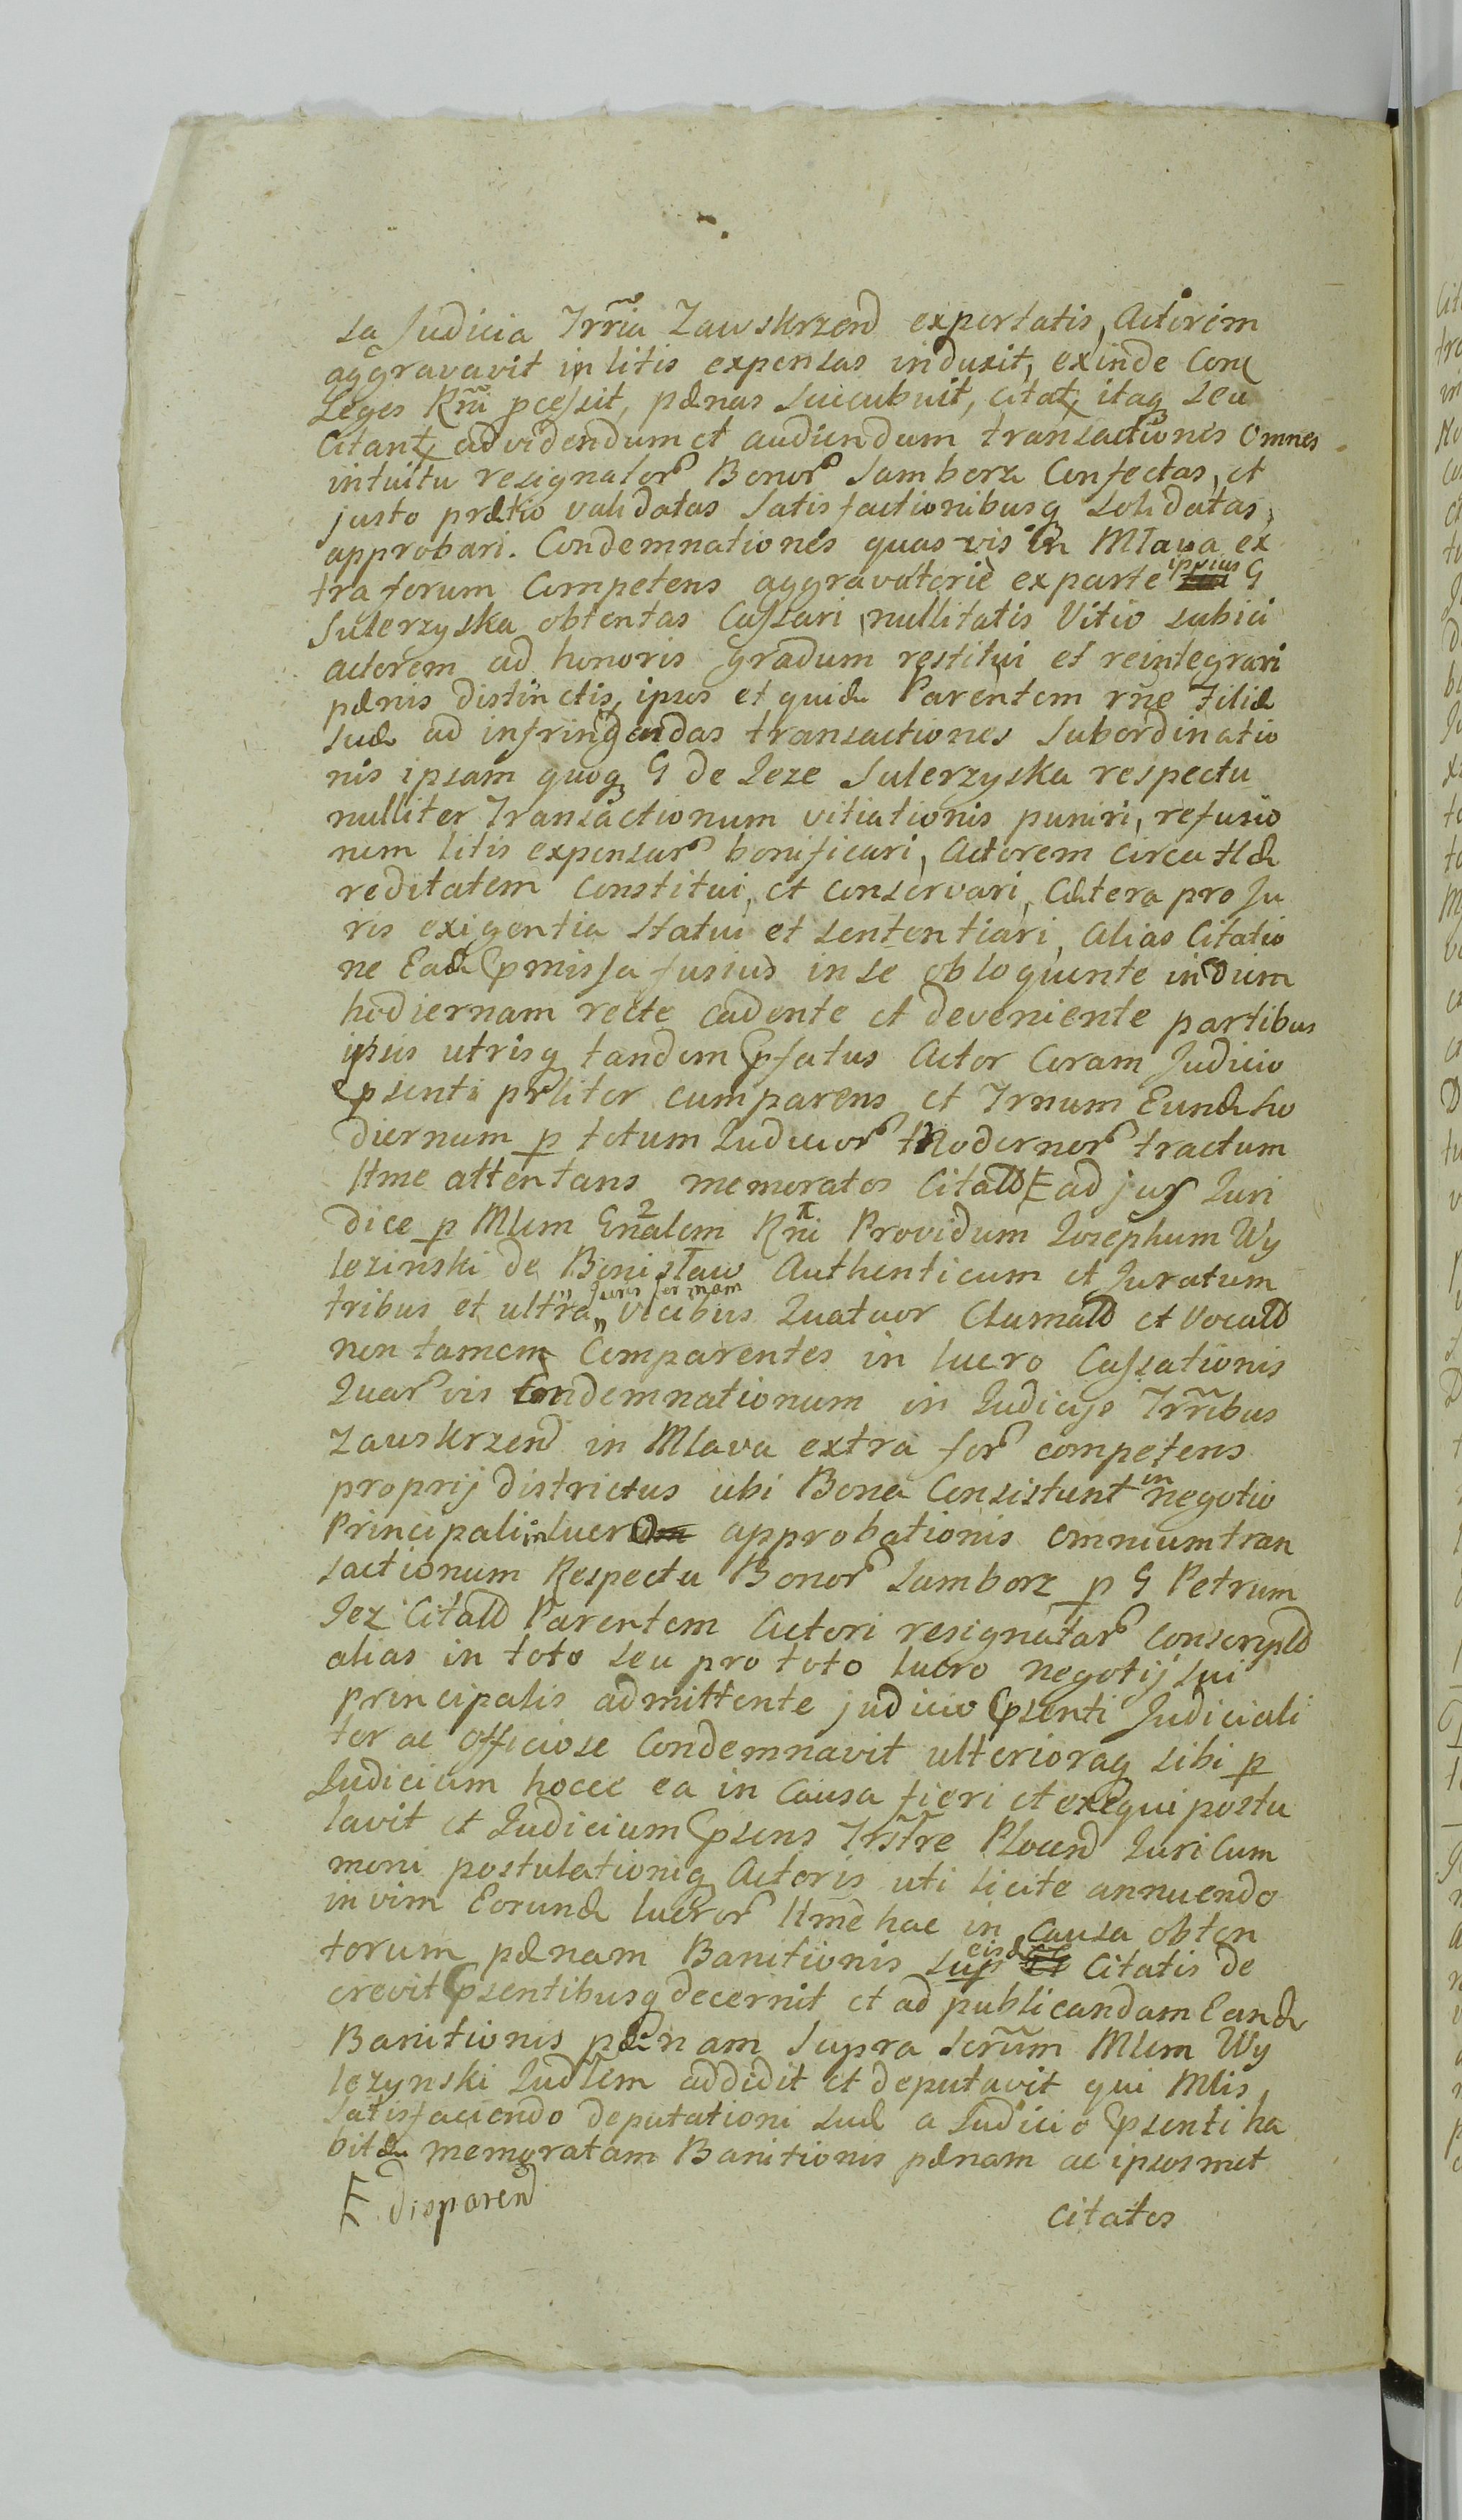 sa Judicia Trr̃ia Zawskrzend exportatis, Actorem
aggravavit in litis expensas induxit, exinde Con
Leges Rñi pcessit, pænas succubuit, citat itaq seu
Citant ad videndum et audiendum transactiones Omnes
intuitu resignator Bonor Samborz Confectas, et
justo prætio validatas satisfactionibusq solidatas,
approbari. Condemnationes quasvis in Mlava ex
tra forum Competens aggravatorie ex parte ipsius G
Sulerzyska obtentas Cassari, nullitatis Vitio subici
actorem ad honoris gradum restitui et reintegrari
pænis distinctis, ipsos et quidæ Parentem rñe Filiæ
suæ ad infringendas transactiones subordinatio
nis ipsam quoq G de Jeze Sulerzyska respectu
nulliter Transactionum vitiationis puniri, refusio
nem litis expensar bonificari, Actorem circa Hæ
reditatem constitui, et conservari, Cætera pro Ju
ris exigentia statui et sententiari, Alias Citatio
ne Eadæ pmissa fusius in se obloquente in diem
hodiernam recte cadente et deveniente partibus
ipsis utrisq tandem pfatus Actor Coram Judicio
psenti prliter comparens et Trnum Eundæ ho
diernum p totum Judicior Modernor tractum
ltme attentans memoratos Citatt E ad jus Juri
dice p Mlem Gnalem Rñi Providum Josephum Wy
lezinski de Bonisław Authenticum et Juratum
tribus et ultra "Juris formam" vicibus Quatuor Clamatt et Vocatt
non tamen Comparentes in lucro Cassationis
Quarvis Condemnationum in Judicijs Trr̃ibus
Zawskrzend in Mlava extra for competens
proprij districtus ubi Bona Consistunt in negotio
Principali in lucro approbationis omnium tran
sactionum Respectu Bonor Samborz p G Petrum
Jez Citatt Parentem Actori resignatar conscriptt
alias in toto seu pro toto lucro negotij sui
principalis admittente judicio psenti Judiciali
ter ac Officiose Condemnavit ulterioraq sibi p
Judicium hocce ea in Causa fieri et exequi postu
lavit et Judicium psens Trstre Plocend Juri Cum
moni postulationiq Actoris uti licite annuendo
in vim Eorundæ lucror ltme hac in causa obten
torum pænam Banitionis sup eisdæ Citatis de
crevit psentibusq decernit et ad publicandam Eandæ
Banitionis pænam supra scrum Mlem Wy
lezynski Judlem addidit et deputavit qui Mlis
satisfaciendo deputationi suæ a Judicio psenti ha
bitæ memoratam Banitionis pænam ac ipsosmet
E disparend
citatos